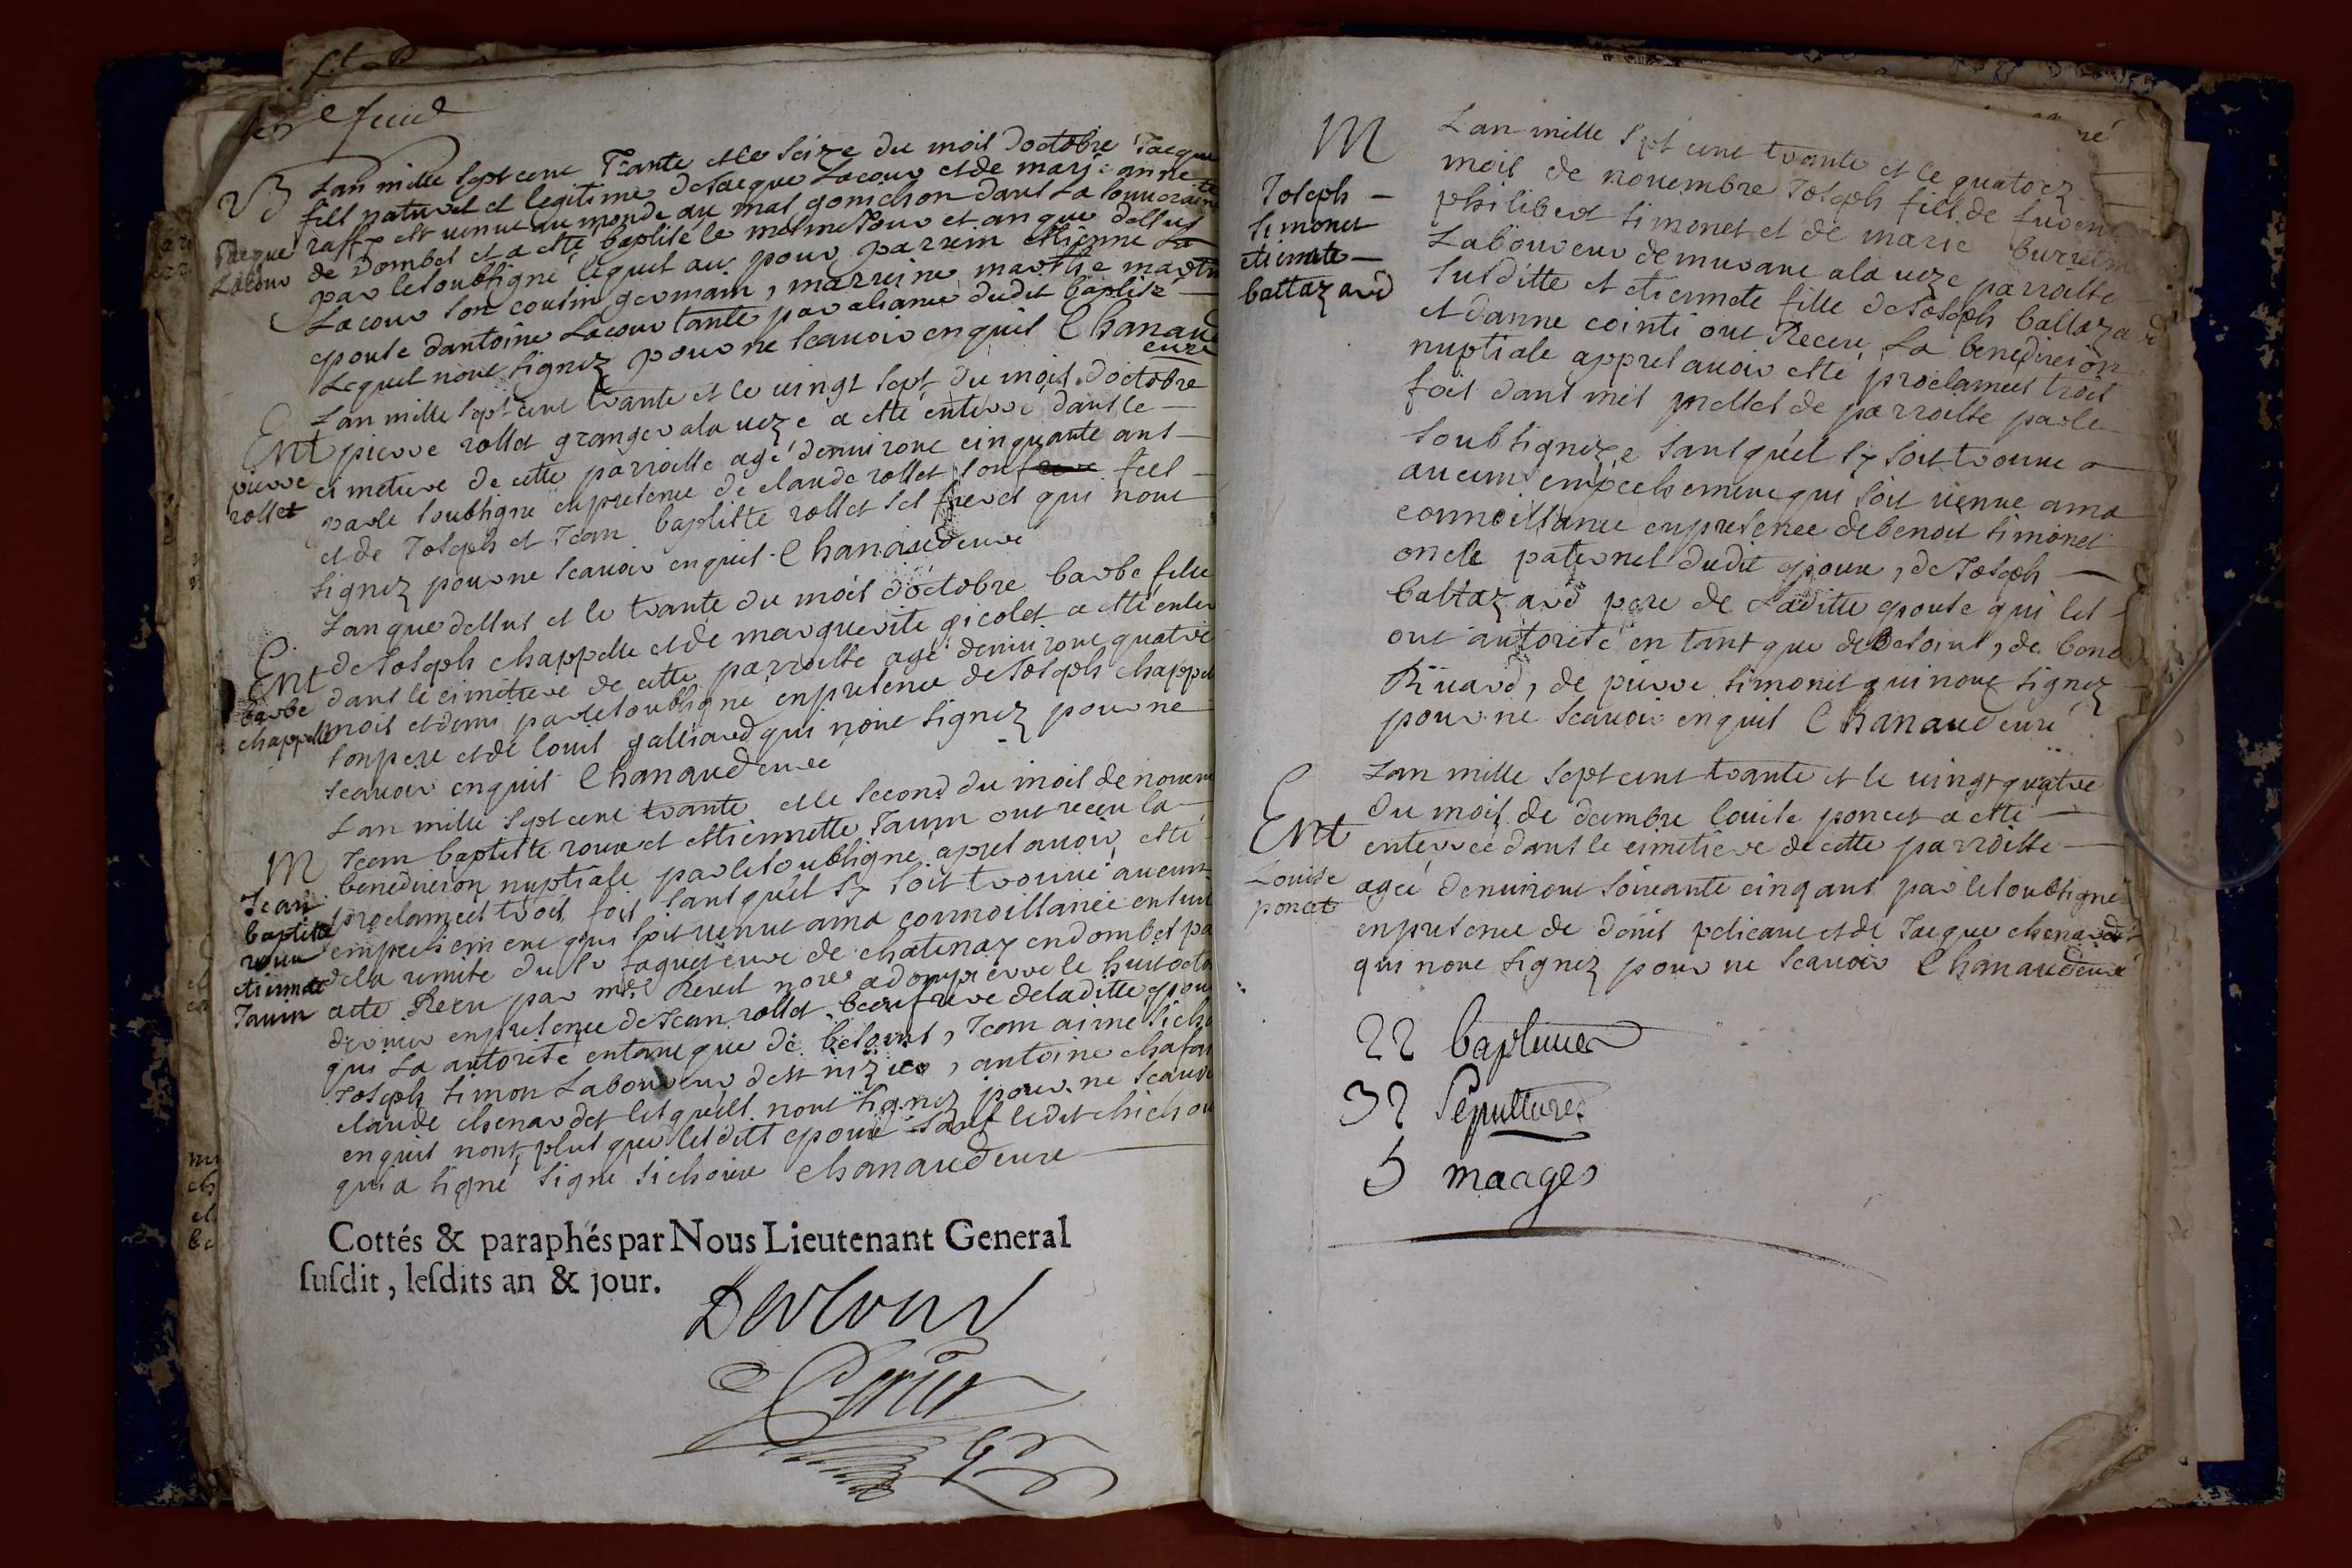 B
Jacque
Lacour
Lan mille Sept cent Trante et le Seize du mois doctobre Jacque
fils naturel et legitime de Jacque Lacour et de marie anne
raffy est venut au monde au mas gonichon dans La Souveraineté
de Dombes et a esté baptisé le mesme Jour et an que dessus
par le soubsigné lequel au pour parrein etienne La
Lacour Son cousin germain, marreine marthe martin
epouse dantoine Lacour tante par aliance dudit baptisé
Lequel nont Signez pour ne Scavoir enquis Chanaud
curé
Ent
pierre
rollet
Lan mille Sept cent trante et le vingt Sept du mois doctobre
pierre rollet granger a la veze a esté enterré dans le
cimetiere de cette parroisse agé denviront cinquante ans
par le Soubsigné en presence de claude rollet Son frere fils
et de Joseph et Jean baptiste rollet Ses freres qui nont
Signez pour ne Scavoir enquis Chanaud curé
Ent
barbe
chappelle
Lan que dessus et le trante du mois doctobre barbe fille
de Joseph chappelle et de marguerite gicolet a esté enter
dans le cimetiere de cette parroisse agé denviront quatre
mois et demi par le soubsigné en presence de Joseph chappel
Son pere et de louis galliard qui nont Signez pour ne
Scavoir enquis Chanaud curé
M
Jean
baptiste
roux
etiennete
Janin
Lan mille Sept cent trante et le Second du mois de novem
Jean baptiste roux et ettiennette Janin ont receu la
benediction nuptiale par le soubsigné apres avoir esté
proclamees trois fois Sans quil Sy Soit trouvé aucun
empechement qui Soit venut a ma connoissance ensuit
de la remise du Sr Jaquet curé de chatenay en dombes pa
acte Recu par mre Revel nore a dompierre le huit octo
dernier en presence de Jean rollet beaufrere de laditte epou
qui La autorise entant que de besoint, Jean aime Sicho
Joseph Simon Laboureur de St nizier, antoine chafa
claude chenardet lesquels nont Signez pour ne Scavo
enquis nont plus que lesdits epoux Sauf ledit chichou
qui a Signé Signé Sichoux Chanaud curé
Cottés & paraphés par Nous Lieutenant General
susdit, lesdits an & jour.
M
Joseph
Simonet
etiennete
baltazard
Lan mille Sept cent trante et le quatorz
mois de novembre Joseph fils de fut
philibert Simonet et de marie
Laboureur demurant a la veze parroisse
Susditte et etiennete fille de Joseph baltazard
et danne cointi ont Receu La benediction
nuptiale appres avoir esté proclamees trois
fois dans mes messes de parroisse par le
Soubsignez Sans quel Sy Soit trouve
aucun empechement qui Soit venue a ma
connoissance en presence de benoit Simonet
oncle paternel dudit epoux, de Joseph
baltazard pere de Laditte epouse qui les
ont autorisé en tant que de besoint, de beno
Rivard, de pierre Simonet qui nont Signez
pour ne Scavoir enquis Chanaud curé
Ent
Louise
poncet
Lan mille Sept cent trante et le vingt quatre
du mois de decembre louise poncet a esté
enterrée dans le cimetiere de cette parroisse
agée denviront Soixante cinq ans par le soubsigné
en presence de denis pelicant et de Jacque chenardet
qui nont Signez pour ne Scavoir Chanaud curé
22 baptemes
32 Sepultures
5 maages